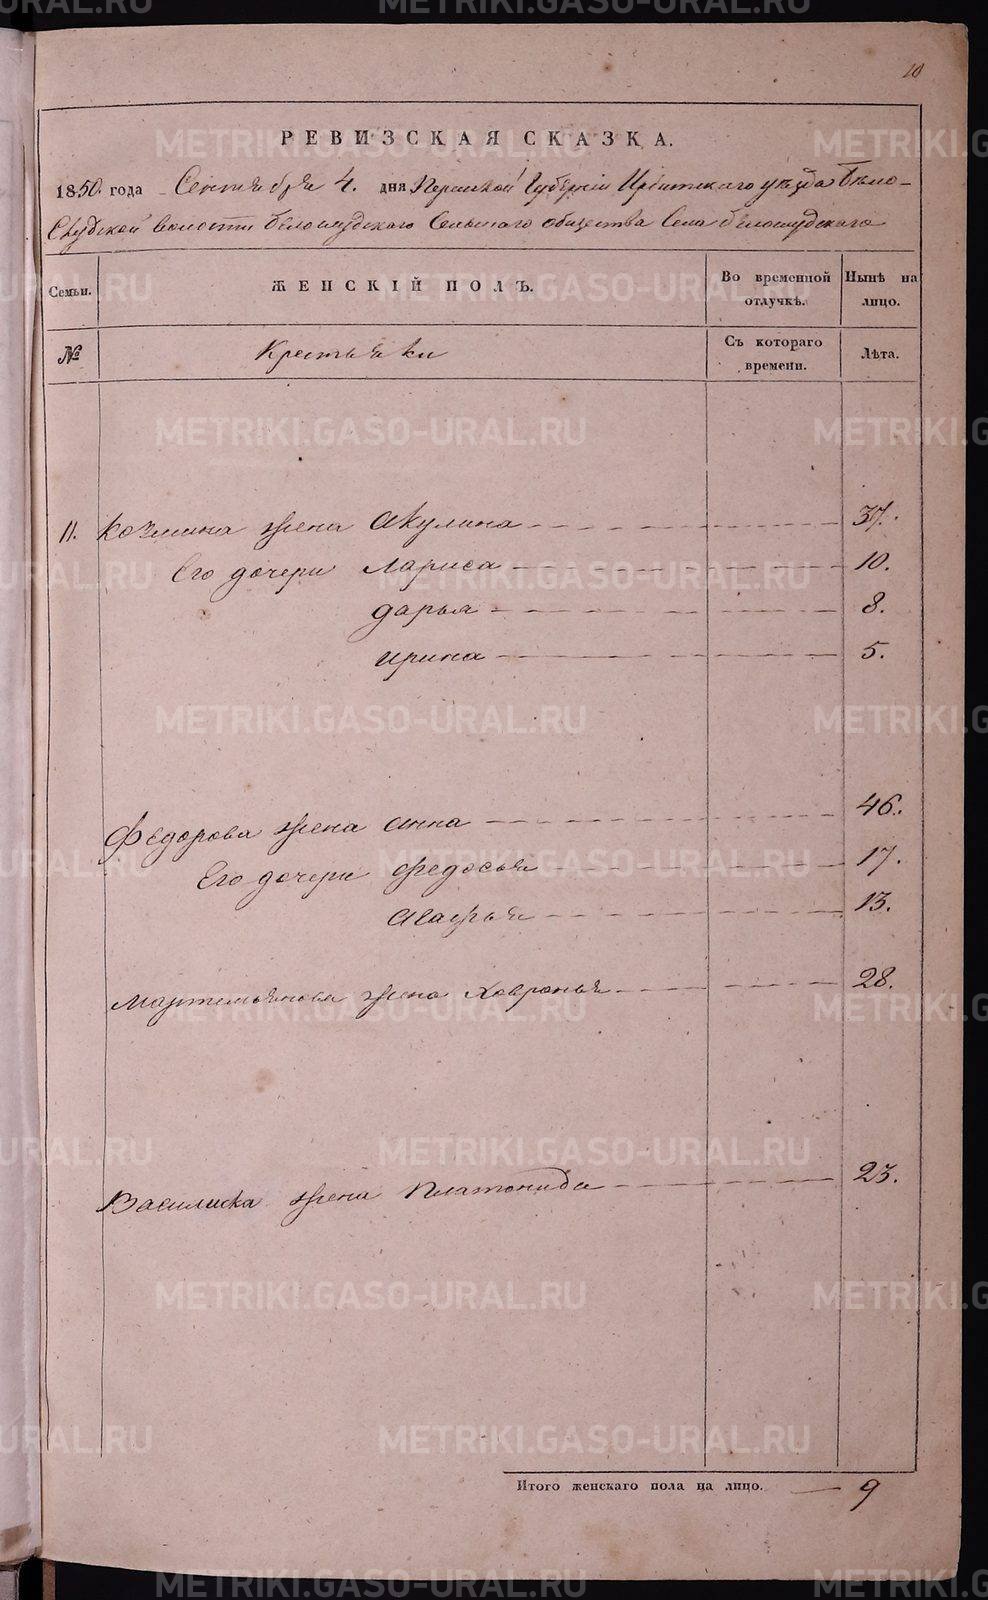 10
РЕВИЗСКАЯ СКАЗКА.
1850. года Сентября 4. дня Пермской Губернiи Ирбитскаго уѣзда Бѣло-
Слудской волости Белослудскаго Сельскаго общества Села Белослудскаго
Семьи. ЖЕНСКIЙ ПОЛЪ. Во временной отлучкѣ. Нынѣ на лицо.
№ Крестьянки Съ котораго времени. Лѣта.
11. Козмина жена Акулина 37.
Его дочери Лариса 10.
Дарья 8.
Ирина 5.
Федорова жена Анна 46.
Его дочери Федосья 17.
Агафья 13.
Мартемьянова жена Хавронья 28.
Василиска жена Платонида 23.
Итого женскаго пола на лицо. — 9
METRIKI.GASO-URAL.RU